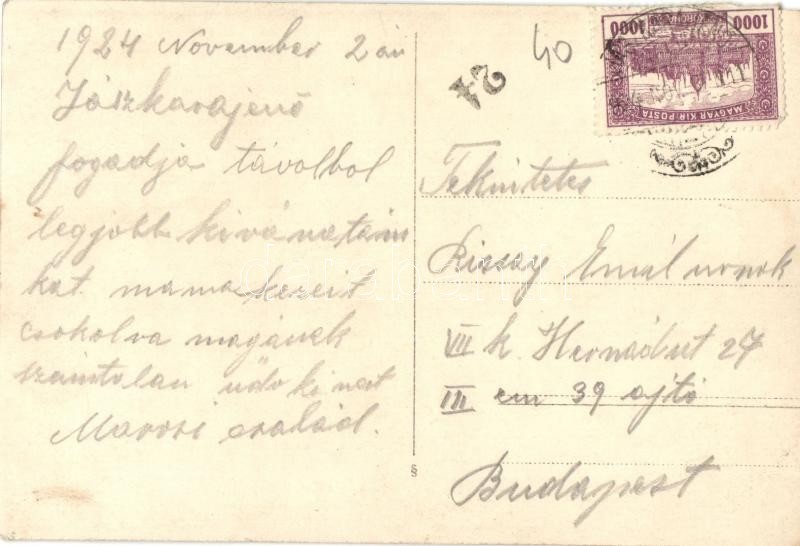 1924 November 2 án
Jászkarajenő
fogadja távolbol
legjobb kivánatain
kat mama kezeit
csokolva magának
számtalan üdv
család.
40
24
1000 KORONA 1000
MAGYAR KIR. POSTA
Tekintetes
Emil urnak
VII k. Hernádut 27
III em 39 ajtó
Budapest
§